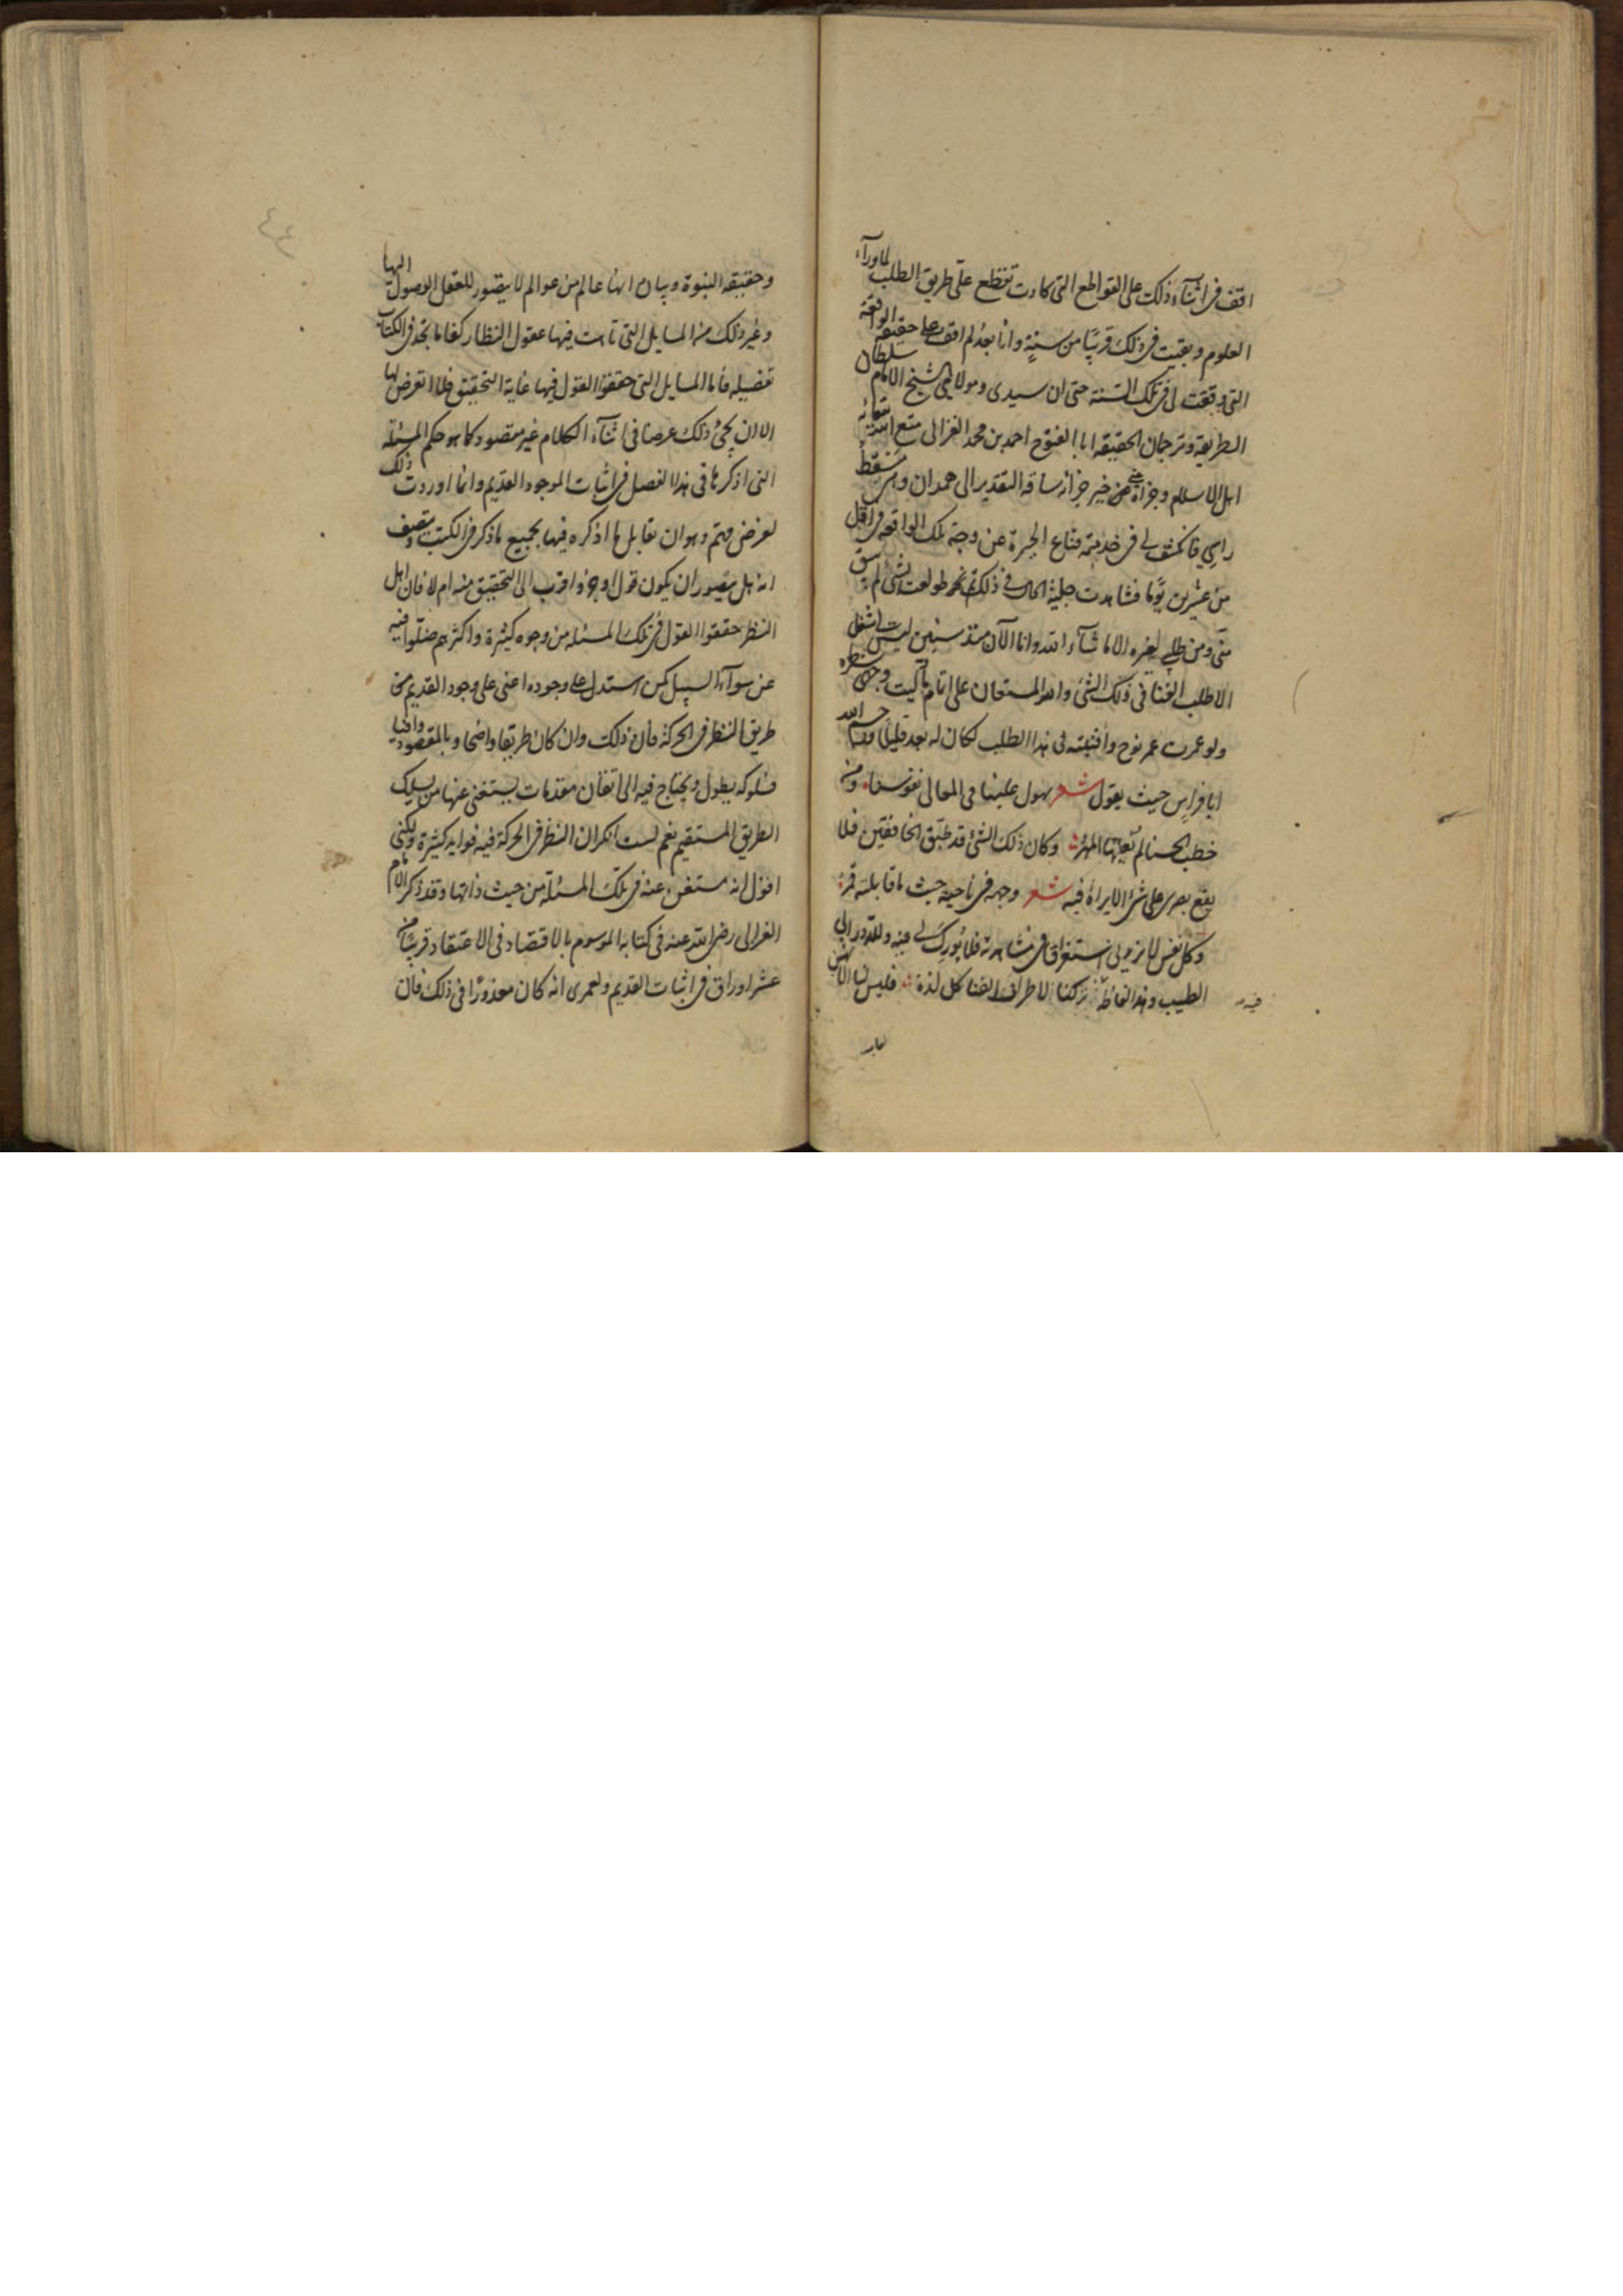 اقف فى اثنآء ذلك على القواطع التى كادت تقطع علىّ طريق الطلب لماورآء
العلوم وبقيت فى ذلك قريبًا من سنةٍ وانا بعدُ لم اقف على حقيقة الواقعة
التى وقعت لى فى تلك السّنة حتى ان سيدى ومولاى الشيخ الامام سلطان
الطريقة وترجمان الحقيقة ابا الفتوح احمد بن محمد الغزالى متع الله ببقائه
اهل الاسلام وجزاه عنى خير جزائه ساقه التقدير الى همدان وهى مسقط
راسي فانكشف لى فى خدمته قناع الحيرة عن وجه تلك الواقعة فى اقل
من عشرين يومًا فشاهدت جلية الحال فى ذلك ثم طولعت بشئ لم يبق
منّى ومن طلبى لغيره الا ما شآء الله وانا الآن منذ سنين ليس لى شغل
الا طلب الفنا فى ذلك الشئ والله المستعان على اتمام ما
ولو عمرت عمر نوح وافنيته فى هذا الطلب لكان له بعد قليلا
ابا فراس حيث يقول شعر يهون علينا فى المعالى نفوسنا ومن
خطب الحسنا لم يغلها المهر وكان ذلك الشئ قد طبّق الخافقين فلا
يقع بصرى على شئ الا يراهُ فيه شعر وجهه فى ناحية حيث ما قابلته قمر
وكل نفس لا يزيدنى استغراقا فى مشاهدته فلا بُورك لى فيه ولله در ابى
الطيب وهذا الفاظه تركنا لاطراف القنا كل لذة فليس لنا الا
فيه
لعاب
٤٤
وحقيقة النبوة وبيان انها عالم من عوالم لا يتصور للعقل الوصول اليها
وغير ذلك من المسايل التى تاهت فيها عقول النظار كفاما تجد فى الكتاب
تفصيله فأما المسايل التى حققوا القول فيها غاية التحقيق فلا اتعرض لها
الا ان يجئ ذلك عرضا فى اثنآء الكلام غير مقصود كما هو حكم المسئلة
التى اذكرها فى هذا الفصل فى اثبات الموجود القديم وانما اوردت ذلك
لغرض مهم وهو ان يقابل ما اذكره فيها بجميع ما ذكر فى الكتب
انه هل يتصور ان يكون قول اوجز واقرب الى التحقيق منه ام لا فان اهل
النظر حققوا القول فى تلك المسئلة من وجوه كثيرة واكثرهم ضلّوا فيه
عن سوآء السبيل كمن استدل على وجوده اعنى على وجود القديم من
طريق النظر فى الحركة فان ذلك وان كان طريقا واضحا وبالمقصود وافيا
فسلوكه يطول ويحتاج فيه الى اتقان مقدمات يستغنى عنها من يسلك
الطريق المستقيم نعم لست انكر ان النظر فى الحركة فيه فوايد كثيرة ولكنى
اقول انه مستغنى عنه فى تلك المسئلة من حيث ذاتها وقد ذكر الامام
الغزالى رضى الله عنه فى كتابه الموسوم بالاقتصاد فى الاعتقاد قريبًا من
عشر اوراق فى اثبات القديم ولعمرى انه كان معذورًا فى ذلك فان